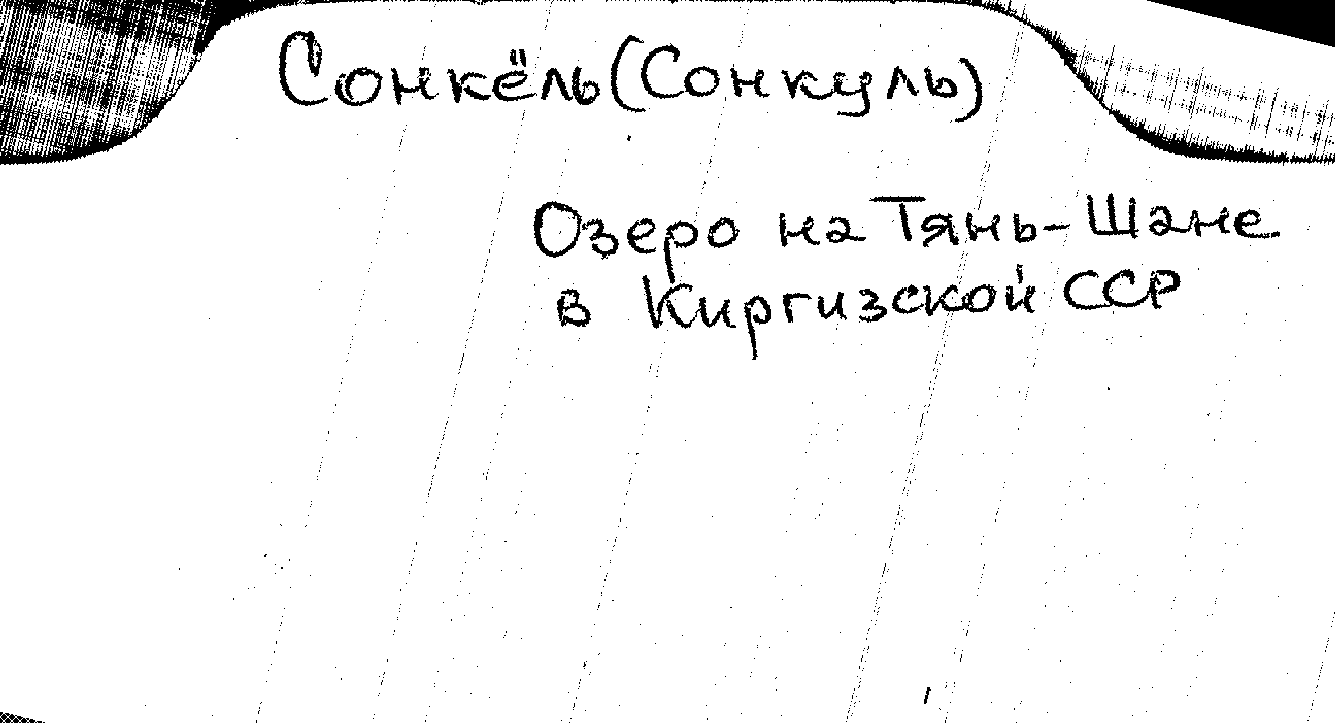 Сонкёль (Сонкуль)
Озеро на Тянь-Шане
в Киргизской ССР